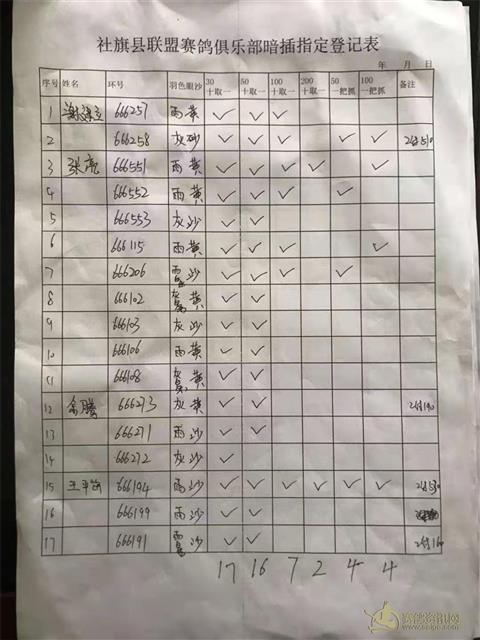 社旗县联盟赛鸽俱乐部暗插指定登记表
年 月 日
序号 姓名 环号 羽色眼沙 30十取一 50十取一 100十取一 200十取一 50一把抓 100一把抓 备注
1 666257 雨黄 ✓ ✓ ✓
2 666258 灰砂 ✓ ✓ ✓ ✓ ✓
3 张亮 666551 雨黄 ✓ ✓ ✓ ✓ ✓
4 666552 雨黄 ✓ ✓ ✓ ✓
5 666553 灰沙 ✓ ✓
6 666115 雨黄 ✓ ✓ ✓ ✓
7 666206 沙 ✓ ✓ ✓ ✓
8 666102 黄 ✓ ✓
9 666103 灰沙 ✓ ✓
10 666106 雨黄 ✓ ✓
11 666108 黄 ✓ ✓
12 余腾 666273 灰黄 ✓ ✓
13 666271 雨沙 ✓ ✓
14 666272 灰沙 ✓
15 666194 雨沙 ✓ ✓ ✓ ✓ ✓ ✓
16 666199 雨沙 ✓ ✓
17 666191 沙 ✓ ✓
17 16 7 2 4 4
赛鸽资讯网